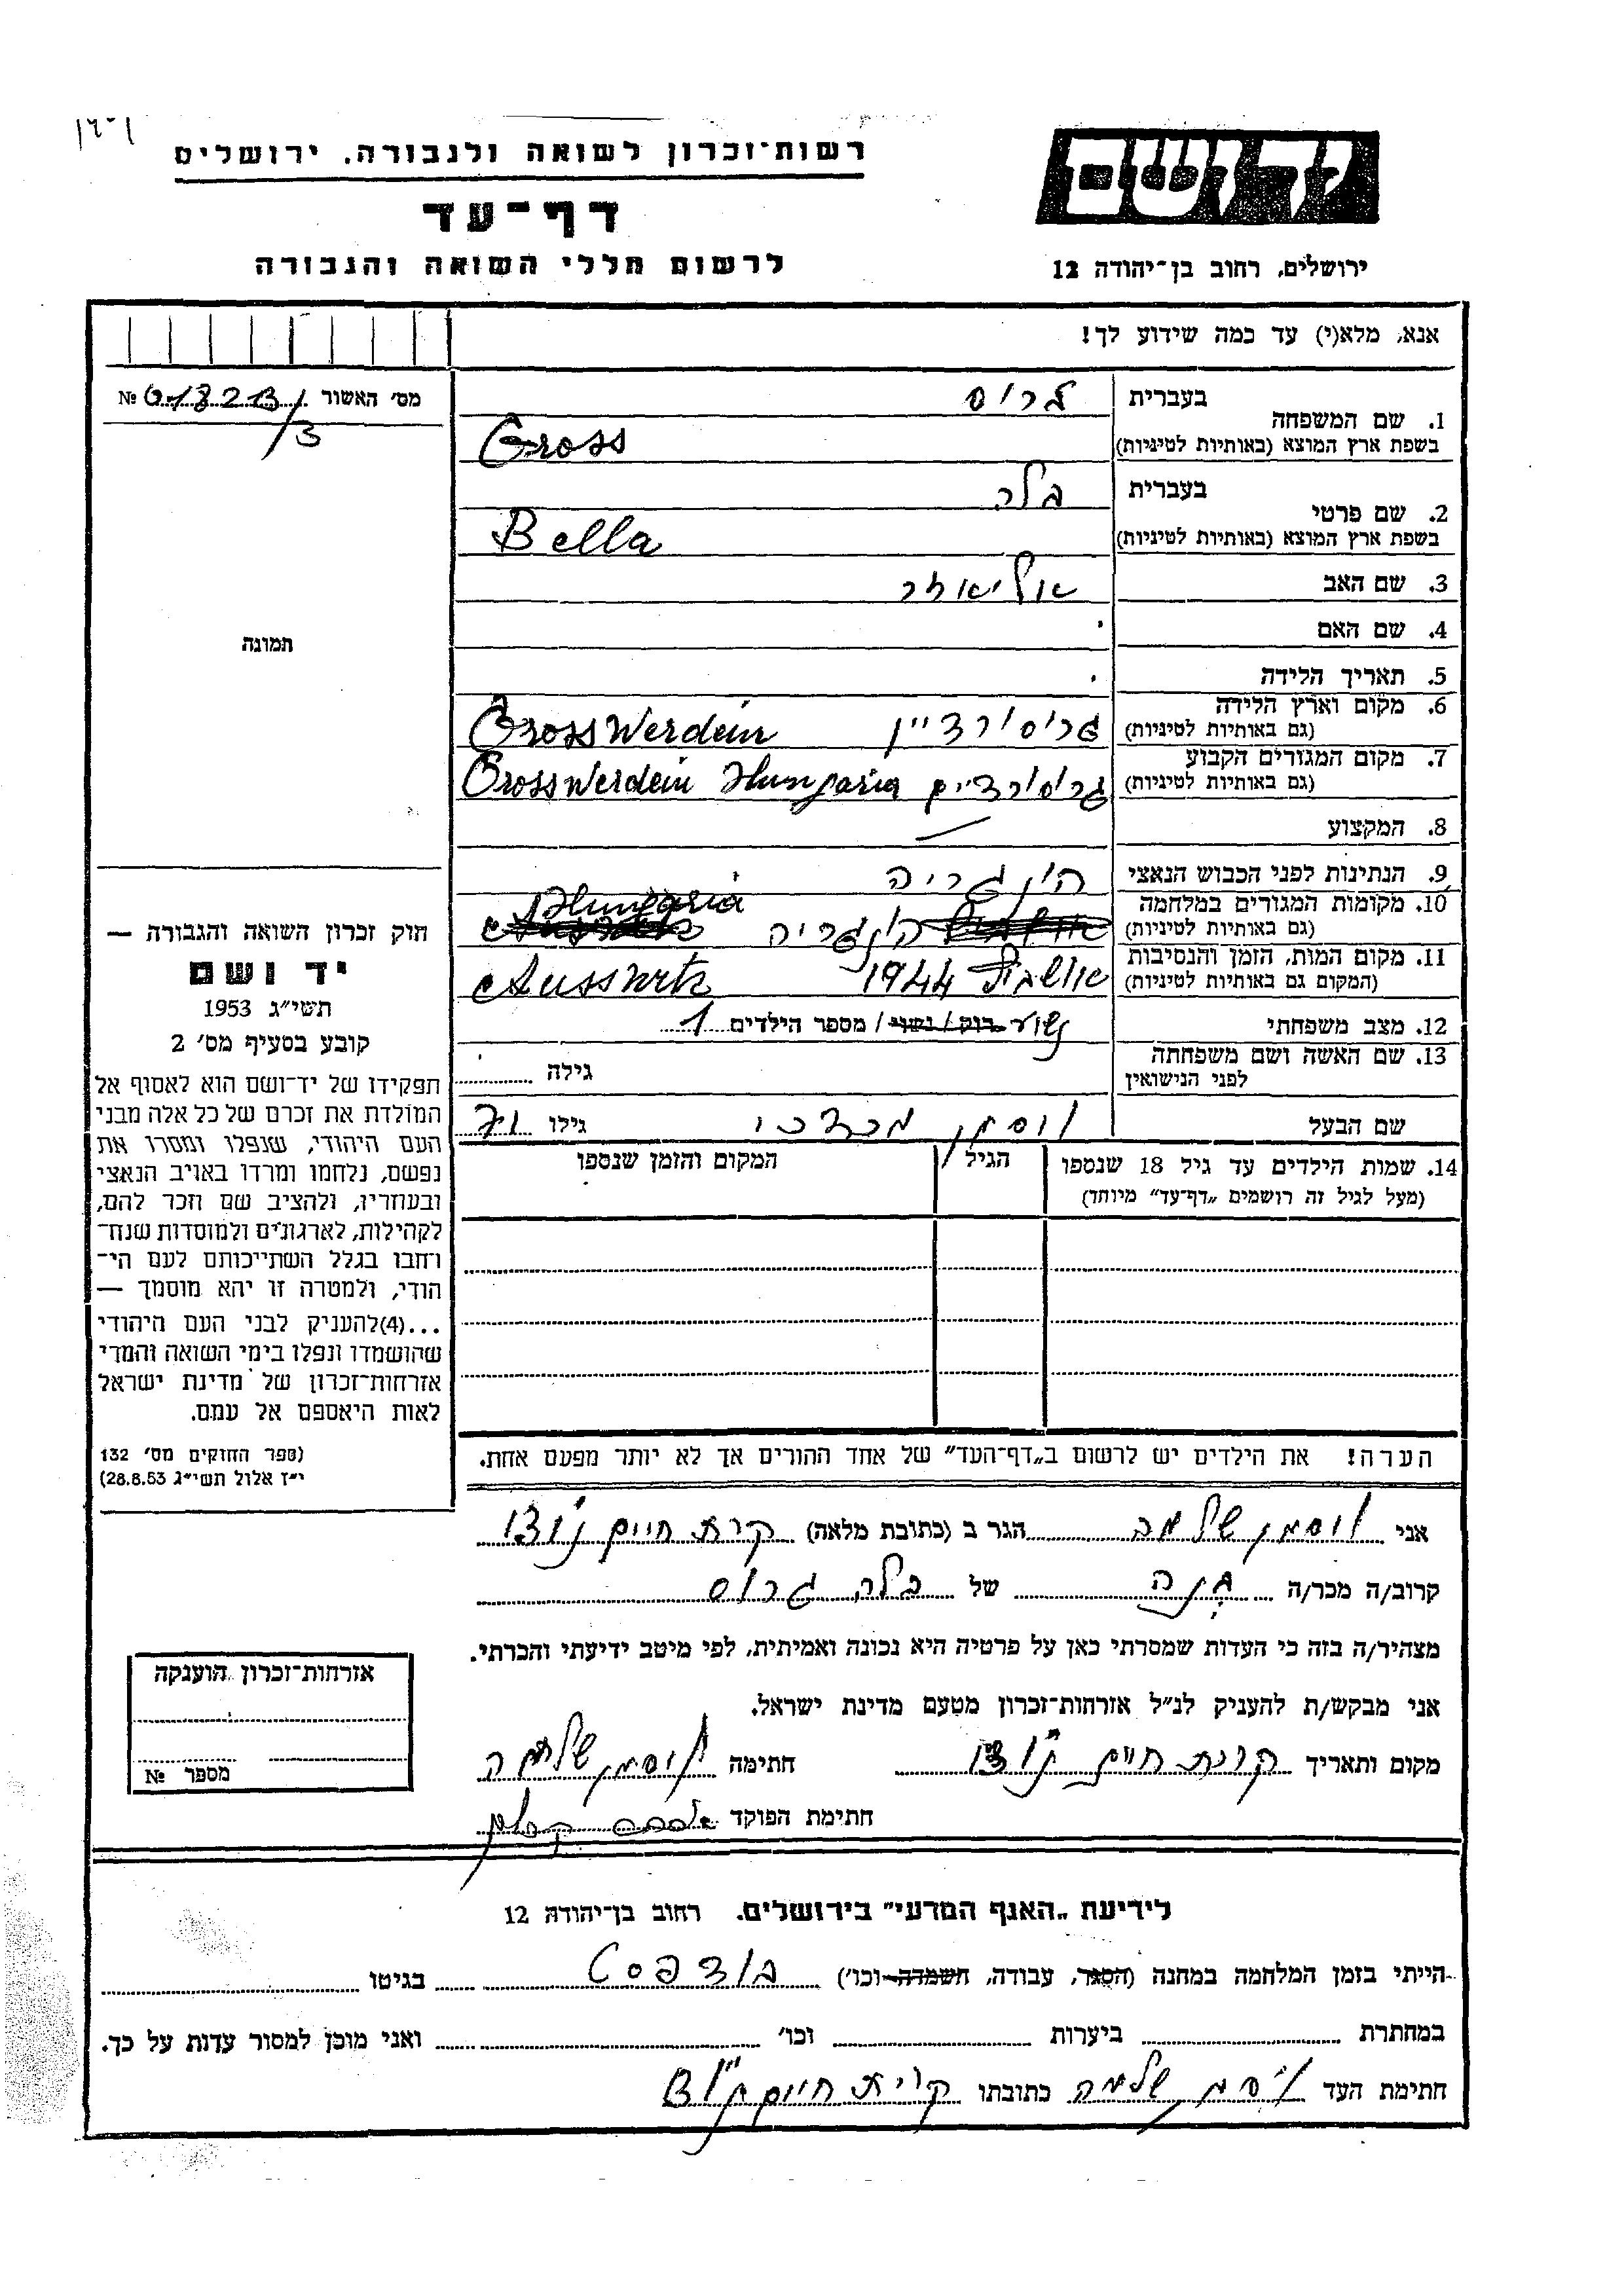 רשות־זכרון לשואה ולגבורה, ירושלים
יד ושם
דף־עד
לרשום חללי השואה והגבורה
ירושלים, רחוב בן־יהודה 12
אנא, מלא(י) עד כמה שידוע לך!
מס' האשור №
/3
1. שם המשפחה
בעברית גרוס
בשפת ארץ המוצא (באותיות לטיניות) Gross
2. שם פרטי
בעברית בלה
בשפת ארץ המוצא (באותיות לטיניות) Bella
3. שם האב
4. שם האם
תמונה
5. תאריך הלידה
6. מקום וארץ הלידה
(גם באותיות לטיניות) גרוסורדיין Gross Werdein
7. מקום המגורים הקבוע
(גם באותיות לטיניות) גרוסורדיין Gross Werdein Hungaria
8. המקצוע
9. הנתינות לפני הכבוש הנאצי הונגריה
10. מקומות המגורים במלחמה
(גם באותיות לטיניות) הונגריה Hungaria
11. מקום המות, הזמן והנסיבות
(המקום גם באותיות לטיניות) 1944 Ausswitz
12. מצב משפחתי רוק / נשוי / מספר הילדים 1
13. שם האשה ושם משפחתה
לפני הנישואין גילה
שם הבעל וסמן מרדכי גילו
14. שמות הילדים עד גיל 18 שנספו הגיל המקום והזמן שנספו
(מעל לגיל זה רושמים „דף־עד" מיוחד)
חוק זכרון השואה והגבורה —
יד ושם
תשי"ג 1953
קובע בסעיף מס' 2
תפקידו של יד־ושם הוא לאסוף אל
המולדת את זכרם של כל אלה מבני
העם היהודי, שנפלו ומסרו את
נפשם, נלחמו ומרדו באויב הנאצי
ובעוזריו, ולהציב שם וזכר להם,
לקהילות, לארגונים ולמוסדות שנח־
רחבו בגלל השתייכותם לעם הי־
הודי, ולמטרה זו יהא מוסמך —
...(4)להעניק לבני העם היהודי
שהושמדו ונפלו בימי השואה והמרי
אזרחות־זכרון של מדינת ישראל
לאות היאספם אל עמם.
(ספר החוקים מס' 132
י"ז אלול תשי"ג 28.8.53)
הערה! את הילדים יש לרשום ב„דף־העד" של אחד ההורים אך לא יותר מפעם אחת.
אני וסמן שלמה הגר ב (כתובת מלאה) קרת חיים
קרוב/ה מכר/ה של בלה גרוס
מצהיר/ה בזה כי העדות שמסרתי כאן על פרטיה היא נכונה ואמיתית, לפי מיטב ידיעתי והכרתי.
אני מבקש/ת להעניק לנ"ל אזרחות־זכרון מטעם מדינת ישראל.
מקום ותאריך קרית חיים חתימה וסמן שלמה
חתימת הפוקד
אזרחות־זכרון הוענקה
מספר №
לידיעת „האגף המדעי" בירושלים. רחוב בן־יהודה 12
הייתי בזמן המלחמה במחנה (הסגר, עבודה, השמדה וכו') בודפסט בגיטו
במחתרת ביערות וכו' ואני מוכן למסור עדות על כך.
חתימת העד וסמן שלמה כתובתו קרית חיים